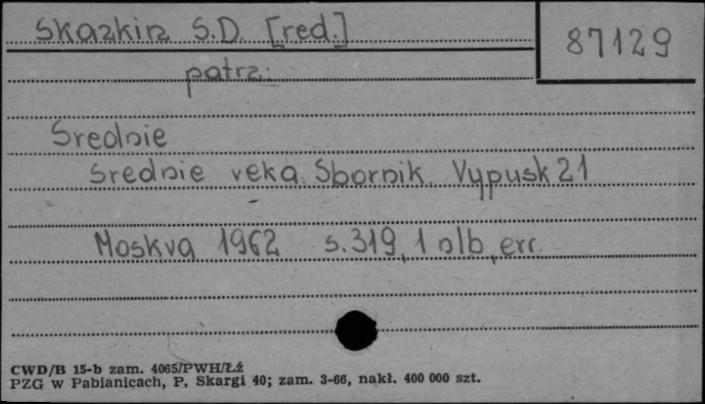 Skazkin S.D. [red.]
87129
patrz:
Srednie
Srednie veka. Sbornik. Vypusk 21
Moskva 1962 s. 319, 1 nlb, err.
CWD/B 15-b zam. 4065/PWH/Łź
PZG w Pabianicach, P. Skargi 40; zam. 3-66, nakł. 400 000 szt.